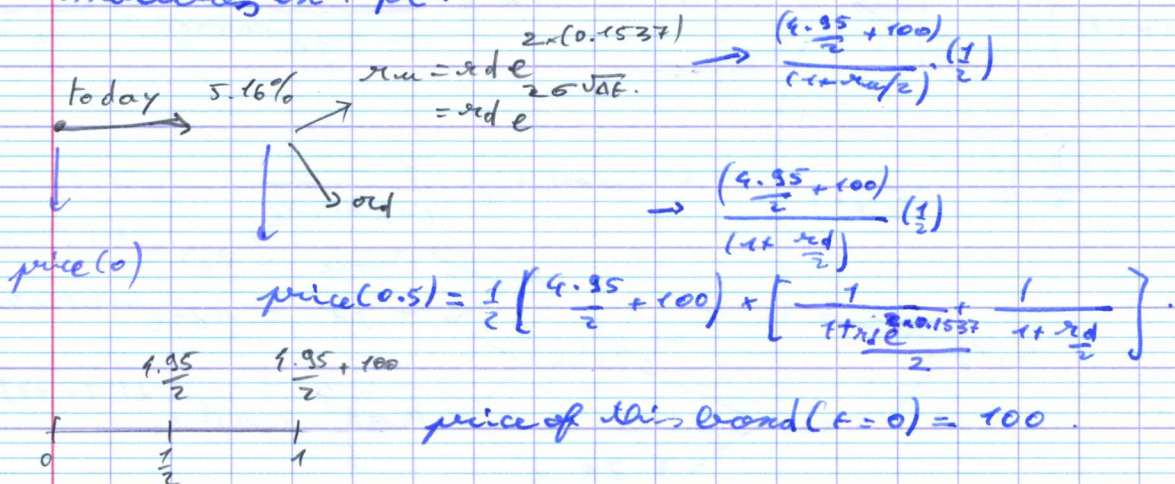 today 5.16%
ru = rd e^{2×(0.1537)} → (4.95/2 + 100)/(1+ru/2) · (1/2)
= rd e^{2σ√Δt}.
rd → (4.95/2 + 100)/(1+ rd/2) (1/2)
price(0)
price(0.5) = 1/2 [4.95/2 + 100) × [1/(1+rd e^{2×0.1537}/2) + 1/(1+rd/2)].
4.95/2 4.95/2 + 100
price of this bond (t=0) = 100.
0 1/2 1